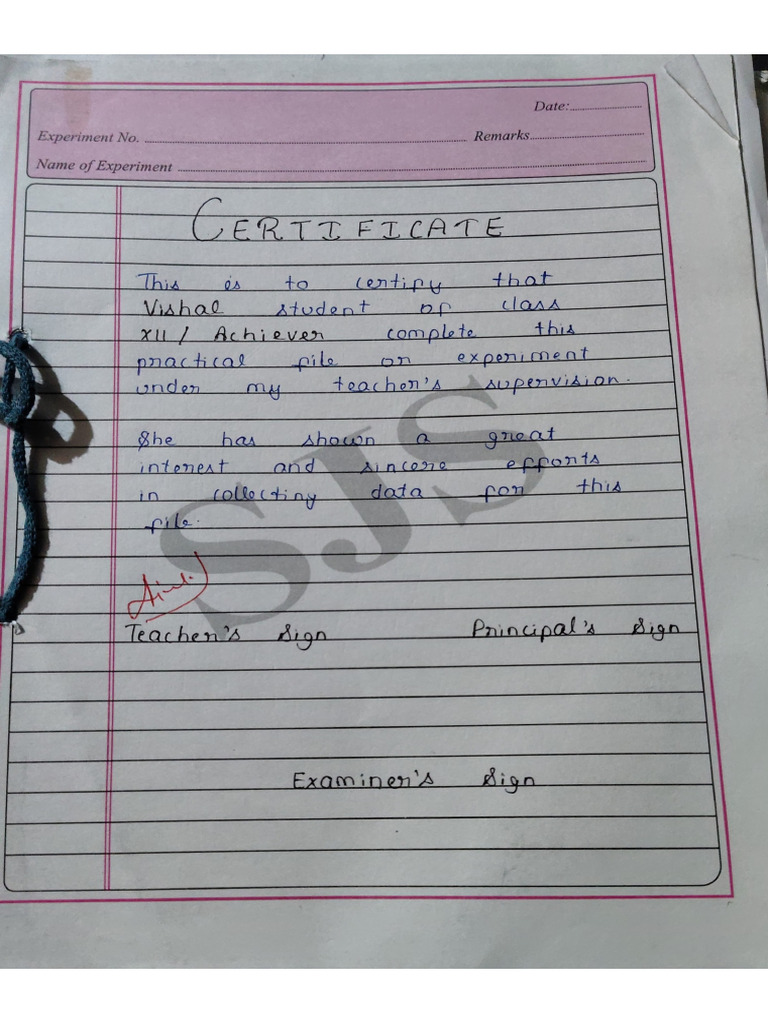 Date:
Experiment No. Remarks
Name of Experiment
CERTIFICATE
This is to certify that
Vishal student of class
XII / Achiever complete this
practical file on experiment
under my teacher's supervision.
She has shown a great
interest and sincere efforts
in collecting data for this
file.
SJS
Teacher's Sign Principal's Sign
Examiner's Sign